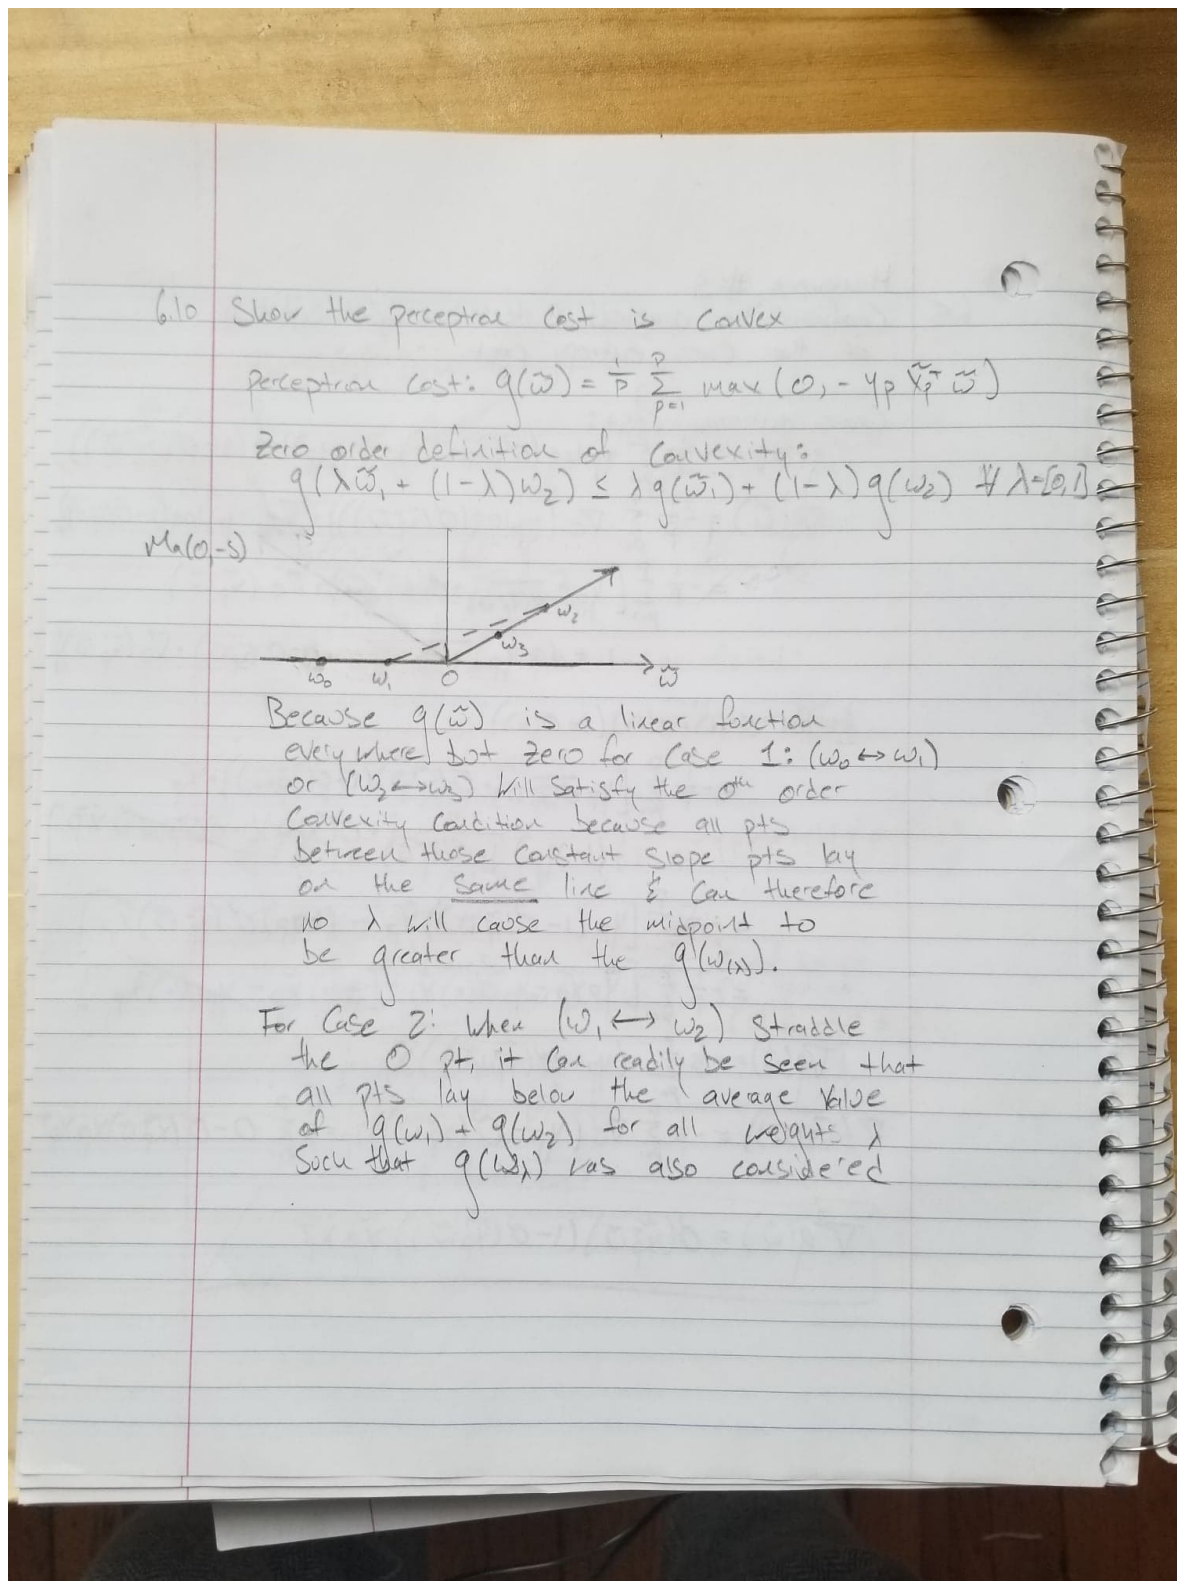 6.10 Show the perceptron cost is convex
perceptron cost: g(w̃) = 1/P Σ_{p=1}^{P} max(0, -yp x̃pᵀ w̃)
Zero order definition of convexity:
g(λw̃₁ + (1-λ)w₂) ≤ λg(w̃₁) + (1-λ)g(w₂) ∀ λ=[0,1]
Ma(0,-s)
w₂
w₃
w₀ w₁ 0 w̃
Because g(w̃) is a linear function
everywhere but zero for case 1: (w₀ ↔ w₁)
or (w₂ ↔ w₃) will satisfy the 0th order
convexity condition because all pts
between those constant slope pts lay
on the same line & can therefore
no λ will cause the midpoint to
be greater than the g(w(λ)).
For Case 2: when (w₁ ↔ w₂) straddle
the 0 pt, it can readily be seen that
all pts lay below the average value
of g(w₁) + g(w₂) for all weights λ
Such that was also considered